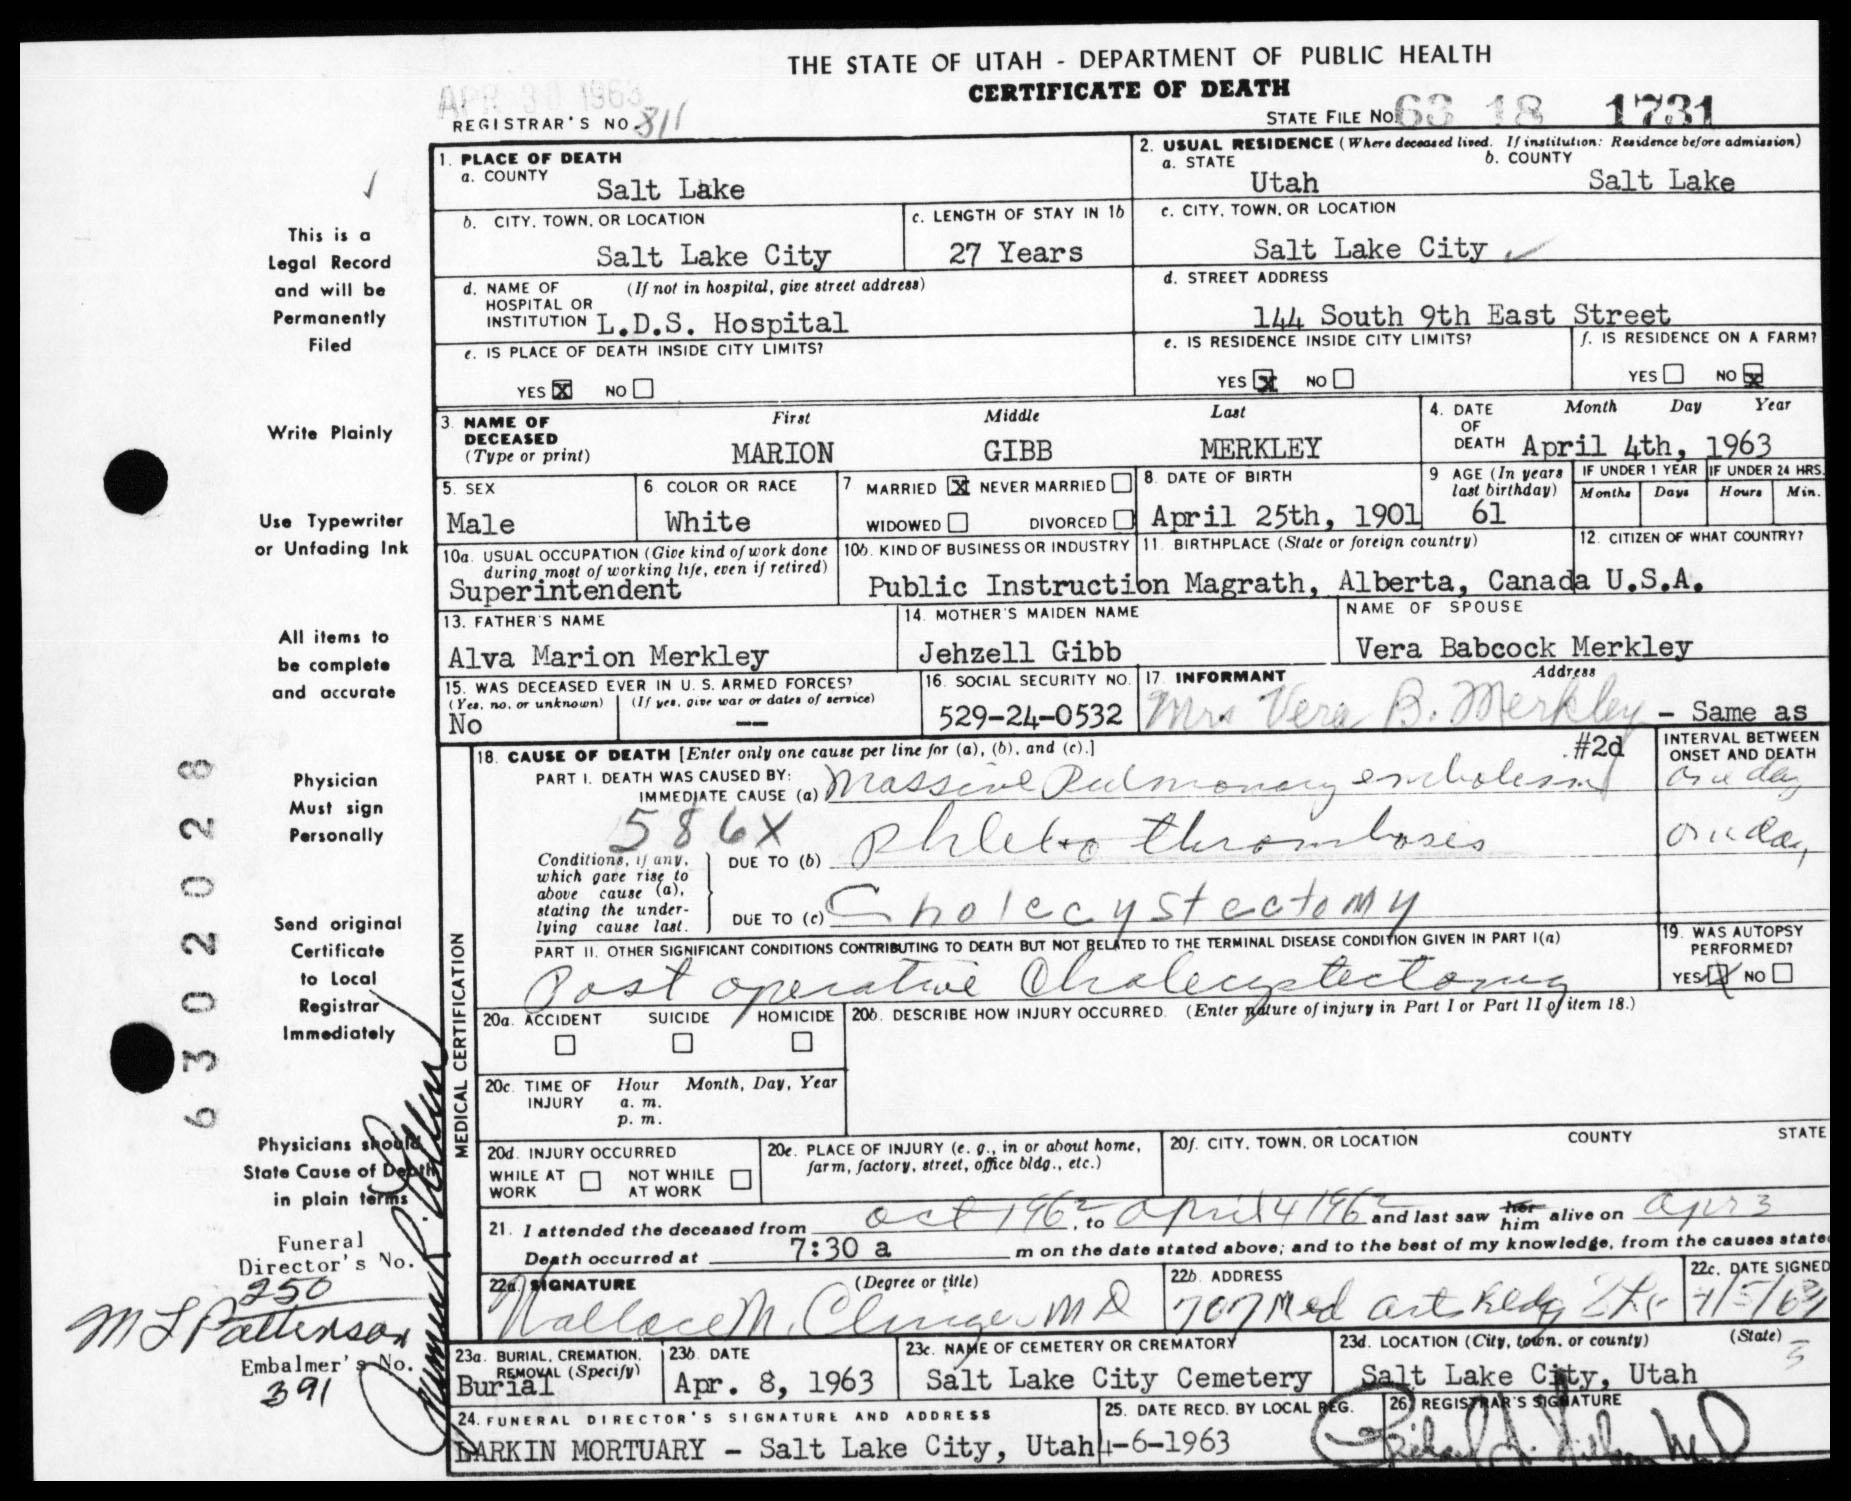 THE STATE OF UTAH - DEPARTMENT OF PUBLIC HEALTH
CERTIFICATE OF DEATH
APR 30 1963
REGISTRAR'S NO 811
STATE FILE NO. 63 18 1731
This is a
Legal Record
and will be
Permanently
Filed
Write Plainly
Use Typewriter
or Unfading Ink
All items to
be complete
and accurate
Physician
Must sign
Personally
Send original
Certificate
to Local
Registrar
Immediately
Physicians should
State Cause of Death
in plain terms
Funeral
Director's No.
250
M L Patterson
Embalmer's No.
391
6302028
1. PLACE OF DEATH
a. COUNTY
Salt Lake
b. CITY, TOWN, OR LOCATION
Salt Lake City
c. LENGTH OF STAY IN 1b
27 Years
d. NAME OF (If not in hospital, give street address)
HOSPITAL OR
INSTITUTION L.D.S. Hospital
e. IS PLACE OF DEATH INSIDE CITY LIMITS?
YES X NO
2. USUAL RESIDENCE (Where deceased lived. If institution: Residence before admission)
a. STATE b. COUNTY
Utah Salt Lake
c. CITY, TOWN, OR LOCATION
Salt Lake City
d. STREET ADDRESS
144 South 9th East Street
e. IS RESIDENCE INSIDE CITY LIMITS?
YES X NO
f. IS RESIDENCE ON A FARM?
YES NO X
3. NAME OF DECEASED (Type or print) First Middle Last
MARION GIBB MERKLEY
4. DATE OF DEATH Month Day Year
April 4th, 1963
5. SEX
Male
6. COLOR OR RACE
White
7 MARRIED X NEVER MARRIED
WIDOWED DIVORCED
8. DATE OF BIRTH
April 25th, 1901
9 AGE (In years last birthday)
61
IF UNDER 1 YEAR IF UNDER 24 HRS.
Months Days Hours Min.
10a. USUAL OCCUPATION (Give kind of work done
during most of working life, even if retired)
Superintendent
10b. KIND OF BUSINESS OR INDUSTRY
Public Instruction
11. BIRTHPLACE (State or foreign country)
Magrath, Alberta, Canada
12. CITIZEN OF WHAT COUNTRY?
U.S.A.
13. FATHER'S NAME
Alva Marion Merkley
14. MOTHER'S MAIDEN NAME
Jehzell Gibb
NAME OF SPOUSE
Vera Babcock Merkley
15. WAS DECEASED EVER IN U.S. ARMED FORCES?
(Yes, no, or unknown) (If yes, give war or dates of service)
No --
16. SOCIAL SECURITY NO.
529-24-0532
17. INFORMANT Address
Mrs Vera B. Merkley - Same as
#2d
MEDICAL CERTIFICATION
18. CAUSE OF DEATH [Enter only one cause per line for (a), (b), and (c).]
INTERVAL BETWEEN
ONSET AND DEATH
PART I. DEATH WAS CAUSED BY:
IMMEDIATE CAUSE (a) Massive Pulmonary embolism one day
586X
Conditions, if any,
which gave rise to
above cause (a),
stating the under-
lying cause last.
DUE TO (b) Phlebo thrombosis one day
DUE TO (c) Cholecystectomy
PART II. OTHER SIGNIFICANT CONDITIONS CONTRIBUTING TO DEATH BUT NOT RELATED TO THE TERMINAL DISEASE CONDITION GIVEN IN PART I(a)
Post operative Cholecystectomy
19. WAS AUTOPSY
PERFORMED?
YES X NO
20a. ACCIDENT SUICIDE HOMICIDE
20b. DESCRIBE HOW INJURY OCCURRED. (Enter nature of injury in Part I or Part II of item 18.)
20c. TIME OF INJURY Hour Month, Day, Year
a. m.
p. m.
20d. INJURY OCCURRED
WHILE AT WORK NOT WHILE AT WORK
20e. PLACE OF INJURY (e. g., in or about home,
farm, factory, street, office bldg., etc.)
20f. CITY, TOWN, OR LOCATION COUNTY STATE
21. I attended the deceased from Oct 1962, to April 4 1962 and last saw her him alive on Apr 3
Death occurred at 7:30 a m on the date stated above; and to the best of my knowledge, from the causes state
22a. SIGNATURE (Degree or title)
Wallace M. Clinger MD
22b. ADDRESS
707 Med Arts Bldg
22c. DATE SIGNED
4/5/63
23a. BURIAL, CREMATION,
REMOVAL (Specify)
Burial
23b. DATE
Apr. 8, 1963
23c. NAME OF CEMETERY OR CREMATORY
Salt Lake City Cemetery
23d. LOCATION (City, town, or county) (State)
Salt Lake City, Utah
24. FUNERAL DIRECTOR'S SIGNATURE AND ADDRESS
LARKIN MORTUARY - Salt Lake City, Utah
25. DATE RECD. BY LOCAL REG.
4-6-1963
26. REGISTRAR'S SIGNATURE